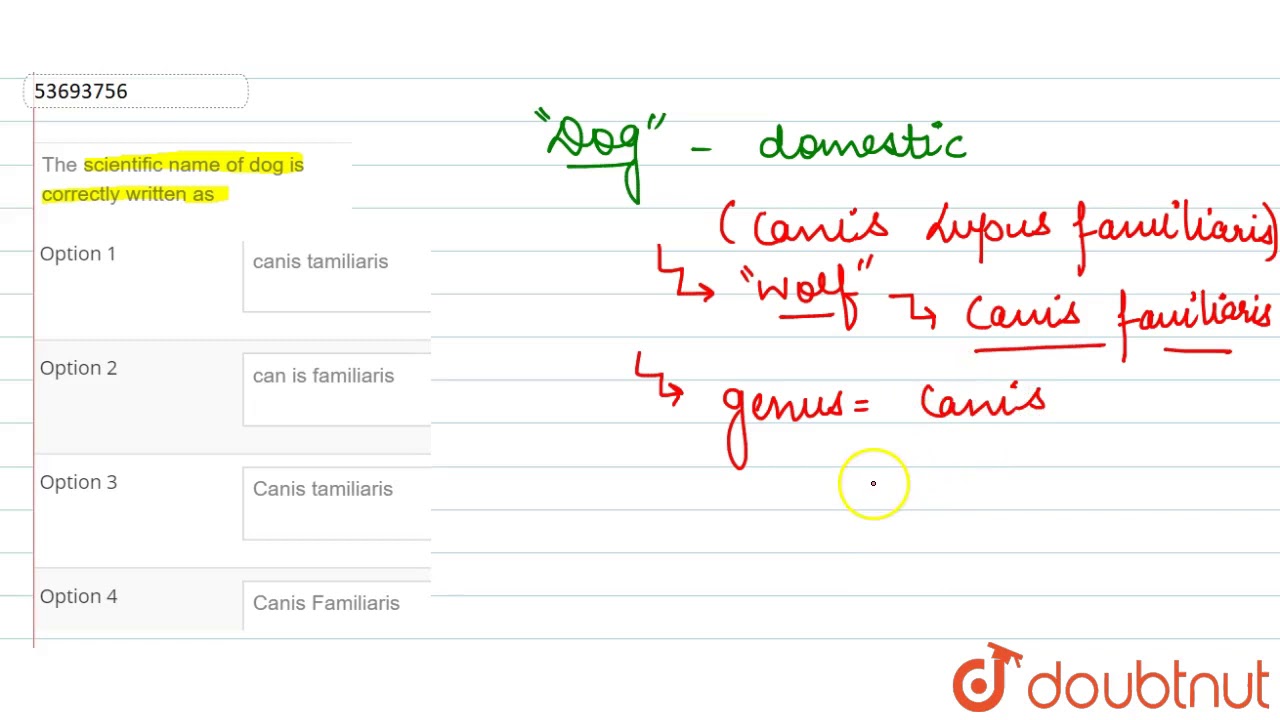 53693756
The scientific name of dog is
correctly written as
Option 1
canis tamiliaris
Option 2
can is familiaris
Option 3
Canis tamiliaris
Option 4
Canis Familiaris
"Dog" - domestic
(Canis Lupus familiaris)
"Wolf" Canis familiaris
genus = Canis
doubtnut